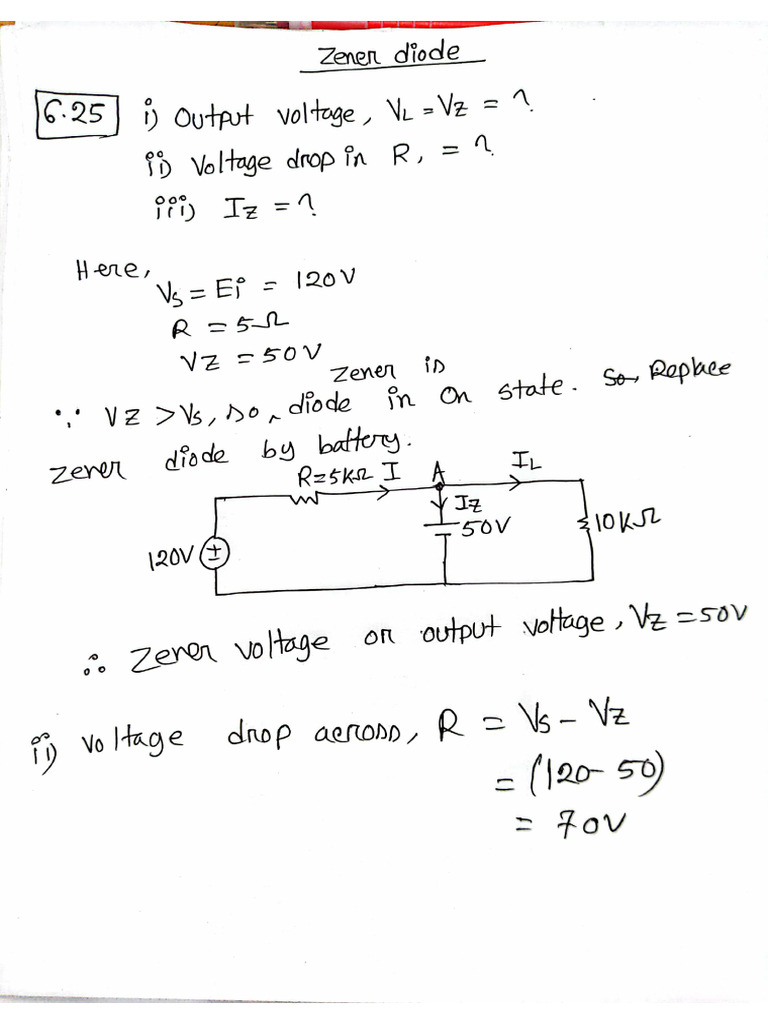 Zener diode
6.25 i) Output voltage, VL = VZ = ?
ii) Voltage drop in R, = ?
iii) IZ = ?
Here,
VS = Ei = 120V
R = 5Ω
VZ = 50V
∵ VZ > VS, so, zener diode is in on state. So, Replace
zener diode by battery.
R=5kΩ I A IL
IZ
50V
10kΩ
120V
∴ Zener voltage or output voltage, VZ = 50V
ii) voltage drop across, R = VS - VZ
= (120 - 50)
= 70V